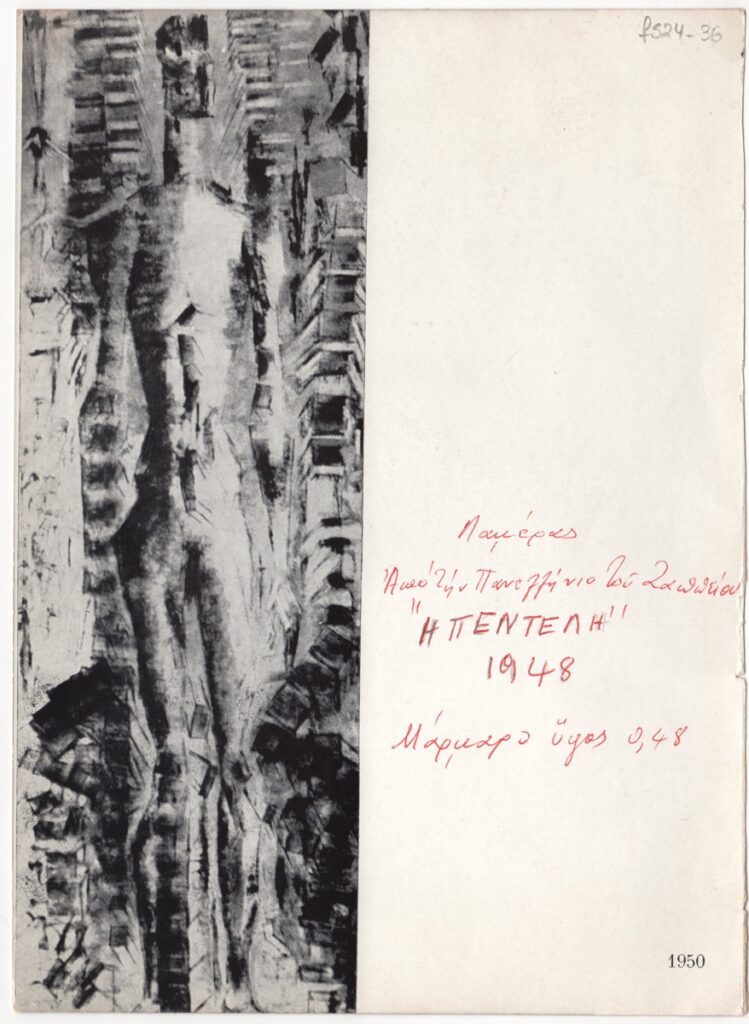 fS24-36
Λαμέρας
Ἀπό τήν Πανελλήνιο τοῦ Ζαππείου
"Η ΠΕΝΤΕΛΗ"
1948
Μάρμαρο ὕψος 0,48
1950